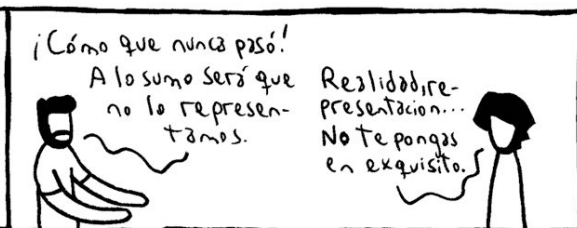 ¡Cómo que nunca pasó!
A lo sumo será que
no lo represen-
tamos.
Realidad, re-
presentacion...
No te pongas
en exquisito.